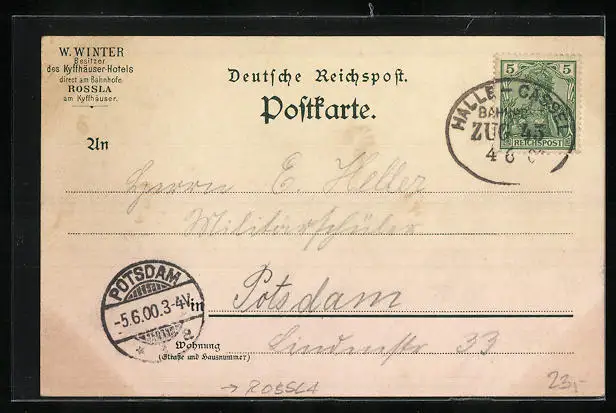 W. WINTER
Besitzer
des Kyffhäuser-Hotels
direct am Bahnhofe.
ROSSLA
am Kyffhäuser.
Deutsche Reichspost.
Postkarte.
5 5
REICHSPOST
HALLE - CASSEL
BAHNPOST
ZUG 45
4 6
An
Herrn E. Heller
Militärschüler
in Potsdam
POTSDAM
-5.6.00.3-4N.
Wohnung
(Straße und Hausnummer)
Lindenstr 33
→ ROSSLA
23,-